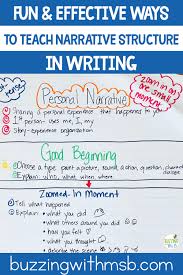 FUN & EFFECTIVE WAYS
TO TEACH NARRATIVE STRUCTURE
IN WRITING
Zoom in on
one small
moment
Personal Narrative
Sharing a personal experience that happened to you
1st person - uses me, I, my
Story-experience organization
Good Beginning
Choose a type: paint a picture, sound, action, question, dialogue
Zoomed-In Moment
Tell what happened
Explain: • what you did
• what others around you did
• how you felt
• what you thought
describe the scene
buzzingwithmsb.com